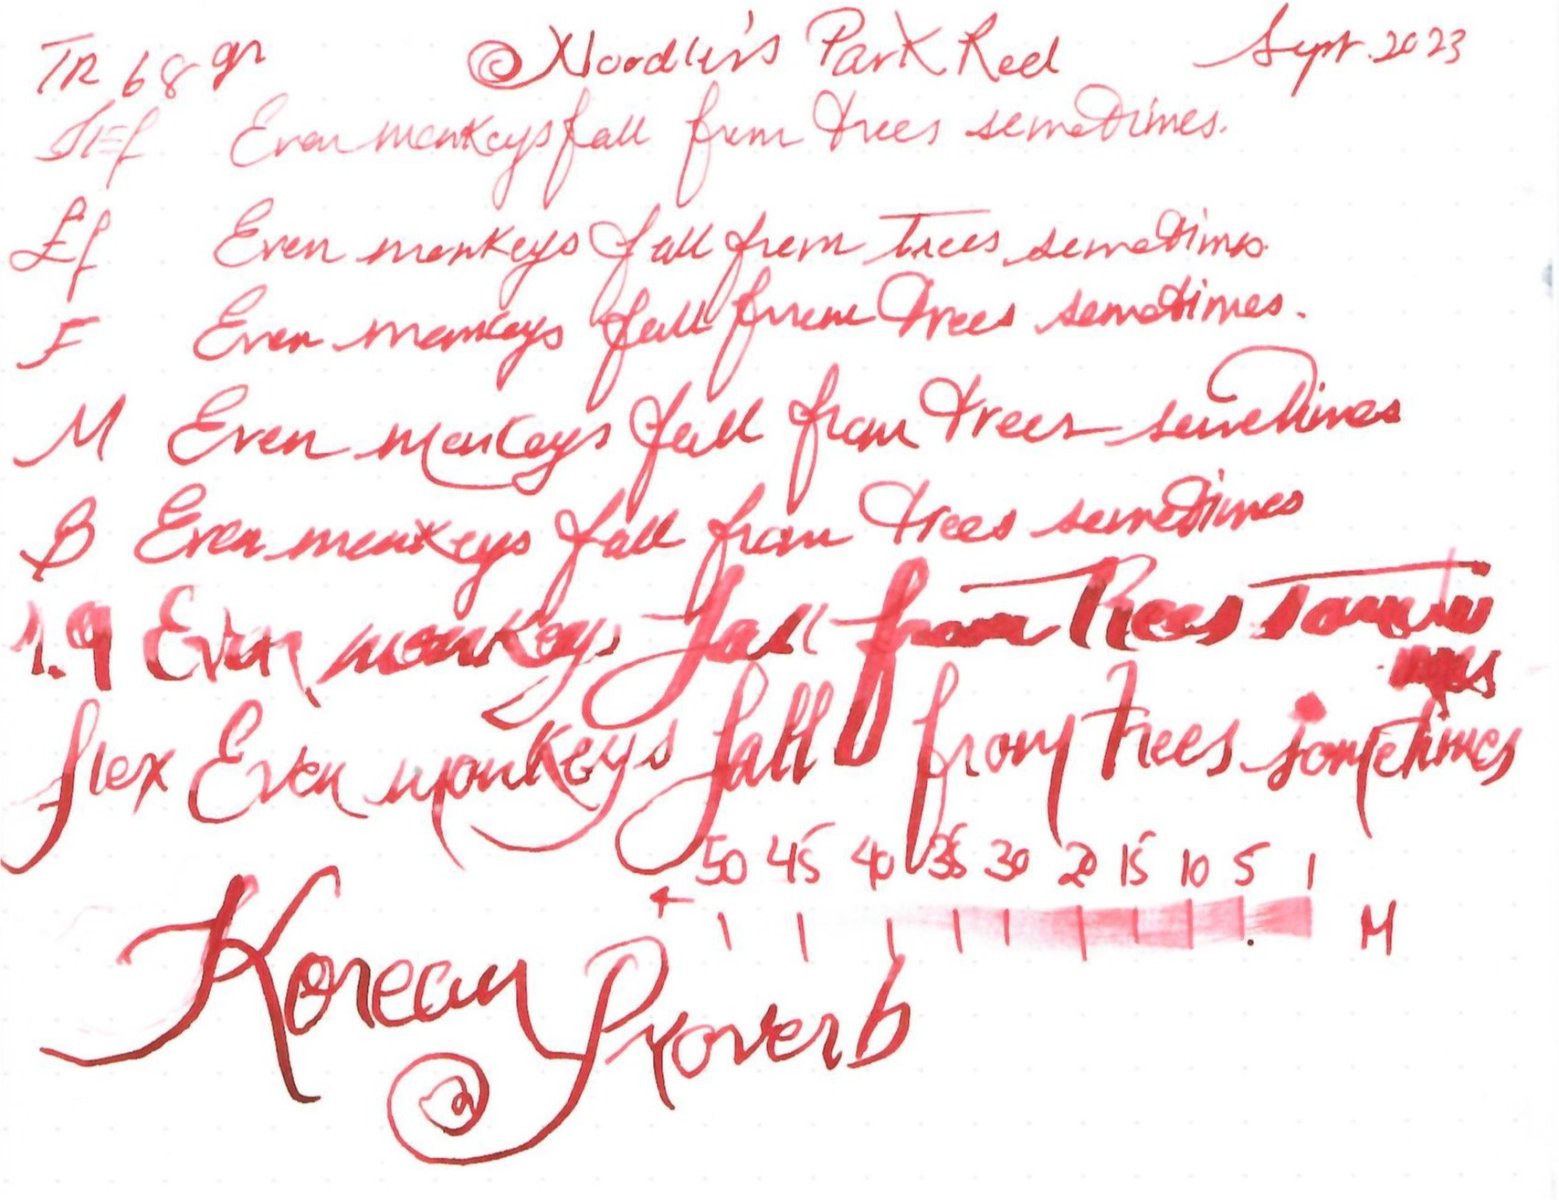 TR 68 gr @ Noodler's Park Red Sept. 2023
Even monkeys fall from trees sometimes.
Ef Even monkeys fall from Trees sometimes.
F Even monkeys fall from trees sometimes.
M Even monkeys fall from trees sometimes
B Even monkeys fall from trees sometimes
1.9 Even monkeys fall from Trees
flex Even monkeys fall from trees sometimes
50 45 40 35 30 20 15 10 5 1
M
Korean
Proverb